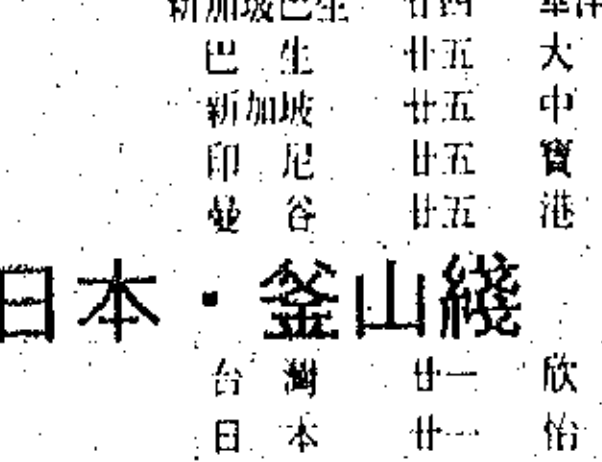 新加坡巴生 廿四 華洋
巴生 廿五 大
新加坡 廿五 中
印尼 廿五 寶
曼谷 廿五 港
日本·釜山綫
台灣 廿一 欣
日本 廿一 怡